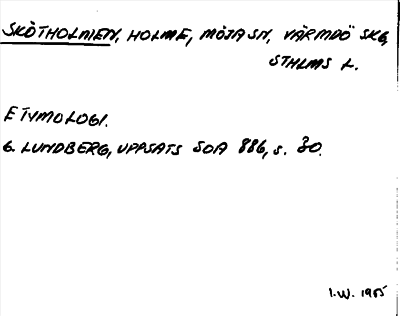 SKÖTHOLMEN, HOLME, MÖJA SN, VÄRMDÖ SKG,
STHLMS L.
ETYMOLOGI.
G. LUNDBERG, UPPSATS SOA 886, S. 30.
I.W. 1985